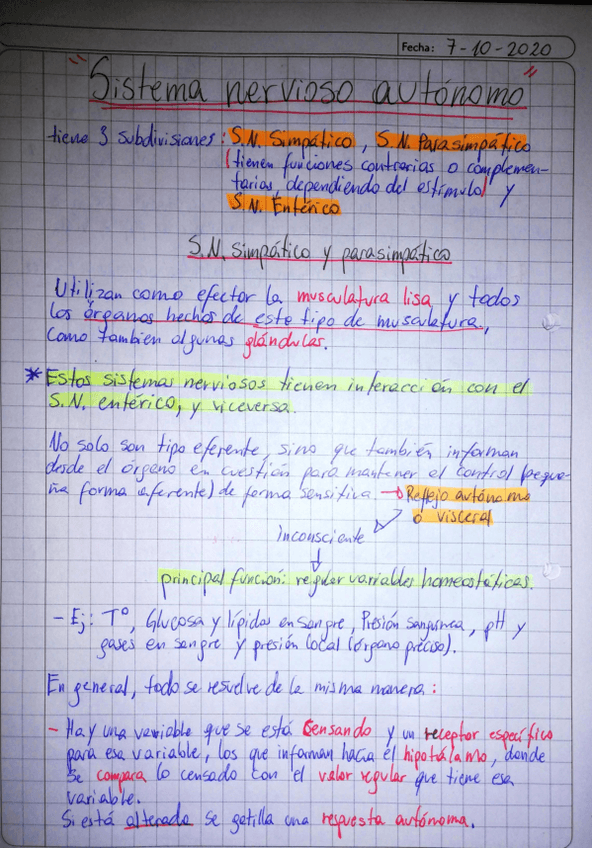 Fecha: 7-10-2020
"Sistema nervioso autónomo"
tiene 3 subdivisiones: S.N. Simpático, S.N. Parasimpático
(tienen funciones contrarias o complemen-
tarias, dependiendo del estímulo) y
S.N. Entérico
S.N. simpático y parasimpático
Utilizan como efector la musculatura lisa y todos
los órganos hechos de este tipo de musculatura,
como también algunas glándulas.
* Estos sistemas nerviosos tienen interacción con el
S.N. entérico, y viceversa.
No solo son tipo eferente, sino que también informan
desde el órgano en cuestión para mantener el control (peque-
ña forma aferente) de forma sensitiva → Reflejo autónomo
o visceral
inconsciente
principal función: regular variables homeostáticas.
- Ej: T°, Glucosa y lípidos en sangre, Presión sanguínea, pH y
gases en sangre y presión local (órgano preciso).
En general, todo se resuelve de la misma manera:
- Hay una variable que se está censando y un receptor específico
para esa variable, los que informan hacia el hipotálamo, donde
se compara lo censado con el valor regular que tiene esa
variable.
Si está alterado se gatilla una respuesta autónoma.